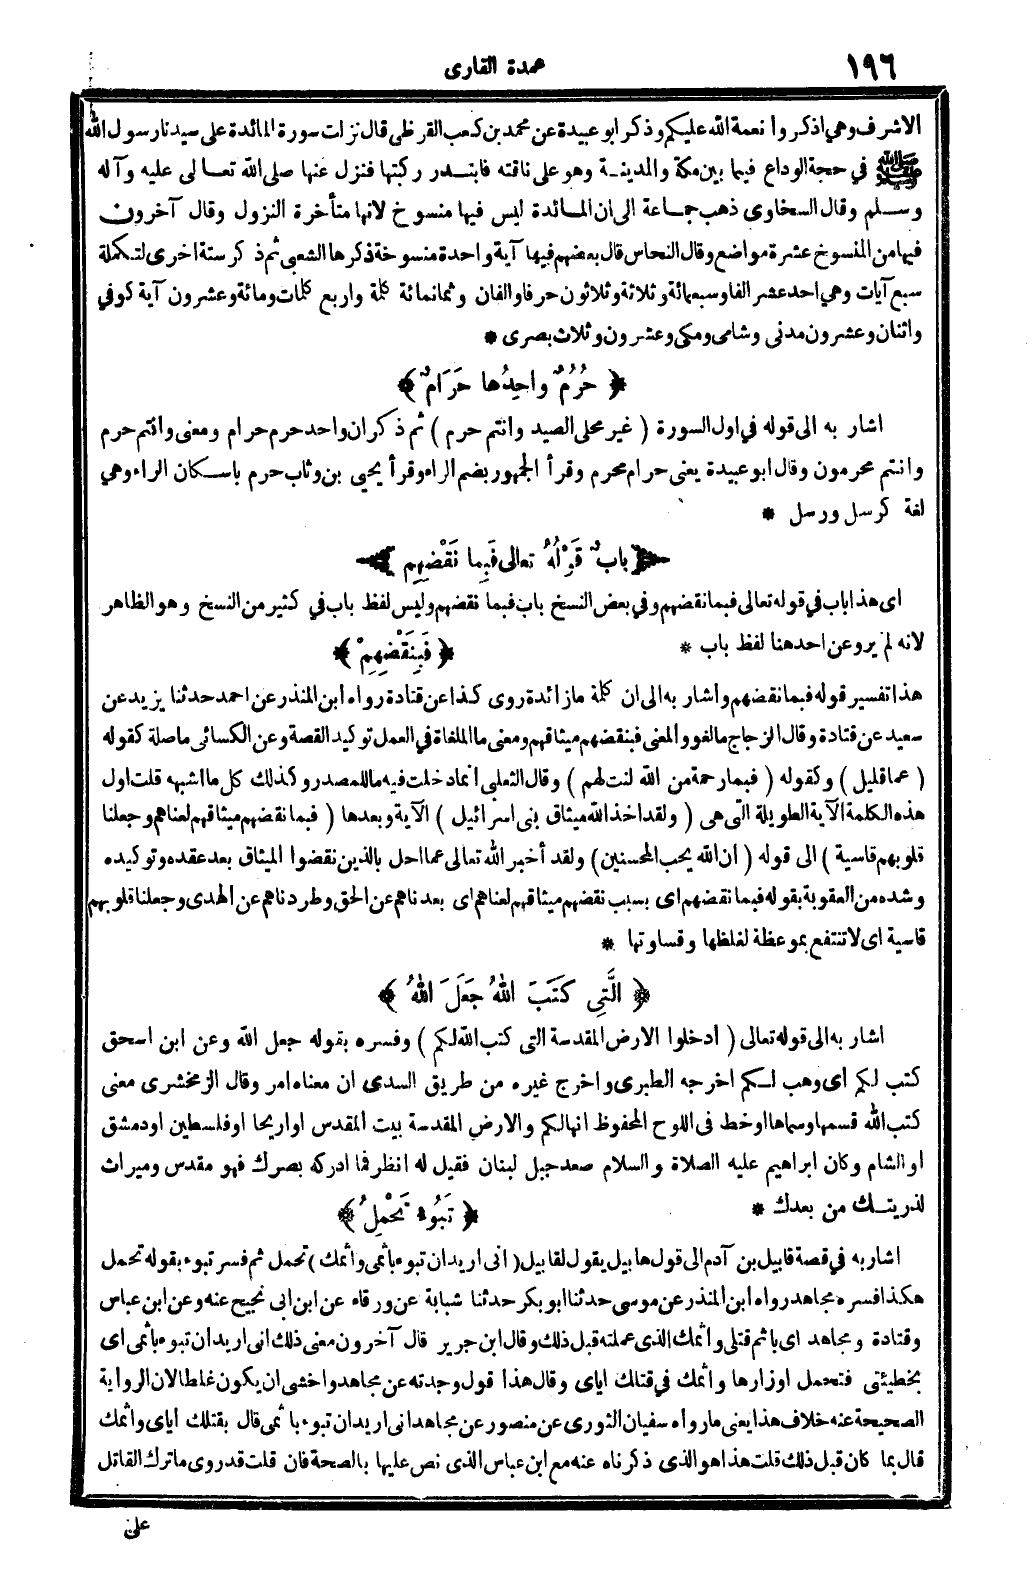 ١٩٦
عمدة القارى
الاشرف وهي اذكروا نعمة الله عليكم وذكر ابو عبيدة عن محمد بن كعب القرظى قال نزلت سورة المائدة على سيدنا رسول الله
ﷺ في حجة الوداع فيما بين مكة والمدينة وهو على ناقته فابتدر ركبتها فنزل عنها صلى الله تعالى عليه وآله
وسلم وقال السخاوى ذهب جماعة الى ان المائدة ليس فيها منسوخ لانها متأخرة النزول وقال آخرون
فيها من المنسوخ عشرة مواضع وقال النحاس قال بعضهم فيها آية واحدة منسوخة ذكرها الشعبى ثم ذكر ستة اخرى لتكملة
سبع آيات وهي احد عشر الفا وسبعمائة وثلاثة وثلاثون حرفا والفان وثمانمائة كلمة واربع كلمات ومائة وعشرون آية كوفي
واثنان وعشرون مدنى وشامى ومكى وعشرون وثلاث بصرى *
﴿ حُرُمٌ واحِدُها حَرَامٌ ﴾
اشار به الى قوله في اول السورة ( غير محلى الصيد وانتم حرم ) ثم ذكر ان واحد حرم حرام ومعنى وانتم حرم
وانتم محرمون وقال ابو عبيدة يعنى حرام محرم وقرأ الجمهور بضم الراء وقرأ يحيى بن وثاب حرم باسكان الراء وهي
لغة كرسل ورسل *
﴿ بابٌ قَوْلُهُ تعالى فَبِما نَقْضِهِم ﴾
اى هذا باب في قوله تعالى فبما نقضهم وفي بعض النسخ باب فبما نقضهم وليس لفظ باب في كثير من النسخ وهو الظاهر
لانه لم يرو عن احد هنا لفظ باب *
﴿ فَبِنَقْضِهِمْ ﴾
هذا تفسير قوله فبما نقضهم واشار به الى ان كلمة ما زائدة روى كذا عن قتادة رواه ابن المنذر عن احمد حدثنا يزيد عن
سعيد عن قتادة وقال الزجاج ما لغو والمعنى فبنقضهم ميثاقهم ومعنى ما الملغاة في العمل توكيد القصة وعن الكسائى ما صلة كقوله
( عما قليل ) وكقوله ( فبما رحمة من الله لنت لهم ) وقال الثعلبي انما دخلت فيه ما للمصدر وكذلك كل ما اشبهه قلت اول
هذه الكلمة الآية الطويلة التى هى ( ولقد اخذ الله ميثاق بنى اسرائيل ) الآية وبعدها ( فبما نقضهم ميثاقهم لعناهم وجعلنا
قلوبهم قاسية ) الى قوله ( ان الله يحب المحسنين) ولقد أخبر الله تعالى عما احل بالذين نقضوا الميثاق بعد عقده وتوكيده
وشده من العقوبة بقوله فبما نقضهم اى بسبب نقضهم ميثاقهم لعناهم اى بعدناهم عن الحق وطردناهم عن الهدى وجعلنا قلوبهم
قاسية اى لا تنتفع بموعظة لغلظها وقساوتها *
﴿ الَّتِي كَتَبَ اللهُ جَعَلَ اللهُ ﴾
اشار به الى قوله تعالى ( ادخلوا الارض المقدسة التى كتب الله لكم ) وفسره بقوله جعل الله وعن ابن اسحق
كتب لكم اى وهب لكم اخرجه الطبرى واخرج غيره من طريق السدى ان معناه امر وقال الزمخشرى معنى
كتب الله قسمها وسماها او خط فى اللوح المحفوظ انها لكم والارض المقدسة بيت المقدس او اريحا او فلسطين او دمشق
او الشام وكان ابراهيم عليه الصلاة والسلام صعد جبل لبنان فقيل له انظر فما ادركه بصرك فهو مقدس وميراث
لذريتك من بعدك *
﴿ تَبُوءُ تَحْمِلُ ﴾
اشار به في قصة قابيل بن آدم الى قول هابيل يقول لقابيل ( انى اريد ان تبوء باثمى وأثمك ) تحمل ثم فسر تبوء بقوله تحمل
هكذا فسره مجاهد رواه ابن المنذر عن موسى حدثنا ابو بكر حدثنا شبابة عن ورقاء عن ابن ابى نجيح عنه وعن ابن عباس
وقتادة ومجاهد اى باثم قتلى وأثمك الذى عملته قبل ذلك وقال ابن جرير قال آخرون معنى ذلك انى اريد ان تبوء باثمى اى
بخطيئتى فتحمل اوزارها وأثمك في قتلك اياى وقال هذا قول وجدته عن مجاهد واخشى ان يكون غلطا لان الرواية
الصحيحة عنه خلاف هذا يعنى ما رواه سفيان الثورى عن منصور عن مجاهد انى اريد ان تبوء باثمى قال بقتلك اياى وأثمك
قال بما كان قبل ذلك قلت هذا هو الذى ذكرناه عنه مع ابن عباس الذى نص عليها بالصحة فان قلت قد روى ما ترك القاتل
على